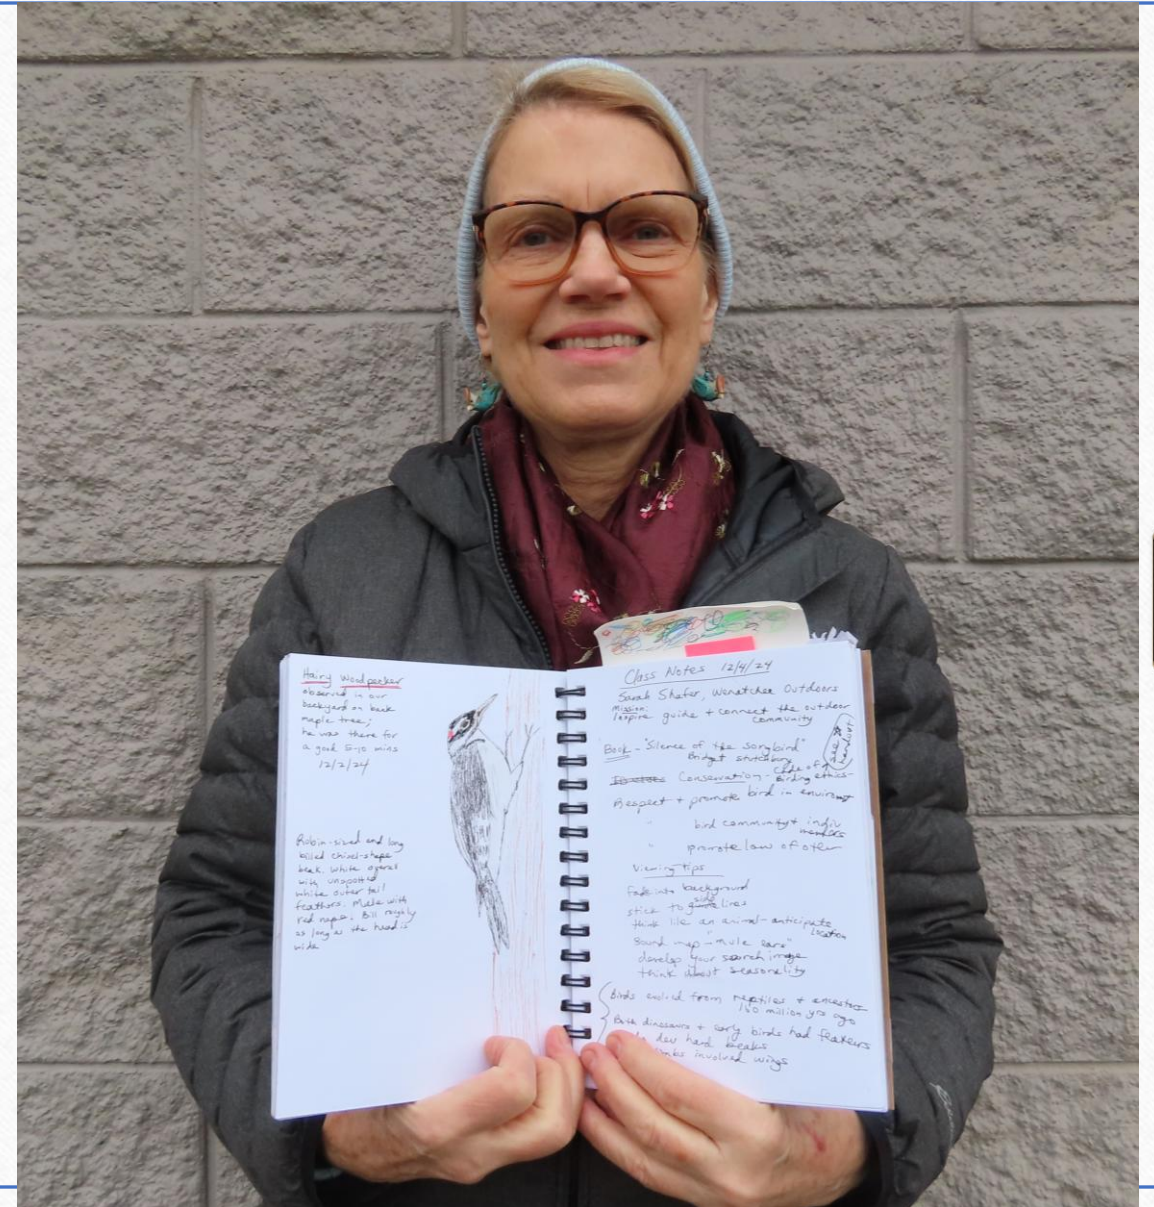 Hairy Woodpecker
observed in our
backyard on back
maple tree;
he was there for
a good 5-10 mins
12/2/24
Robin-sized and long
billed chisel-shape
beak. White overall
with unspotted
white outer tail
feathers. Male with
red nape. Bill roughly
as long as the head is
wide
Class Notes 12/4/24
Sarah Shafer, Wenatchee Outdoors
Mission:
Inspire guide + connect the outdoor
community
see handout
Book - "Silence of the songbird"
Bridget stutchbury
Conservation - Code of
Birding ethics-
Respect + promote bird in environmt
" bird community + indiv
members
" promote law of other
Viewing tips
fade into background
stick to side lines
think like an animal - anticipate
location
Sound map - "mule ears"
develop your search image
think about seasonality
Birds evolved from reptiles + ancestors
160 million yrs ago
Both dinosaurs + early birds had feathers
dev hard beaks
limbs involved wings